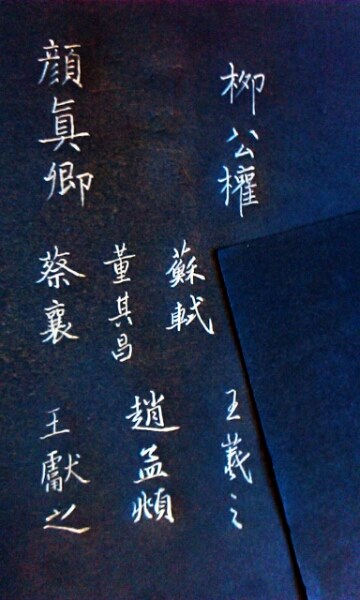 柳公權
顏真卿
蘇軾
董其昌
蔡襄
王羲之
趙孟頫
王獻之